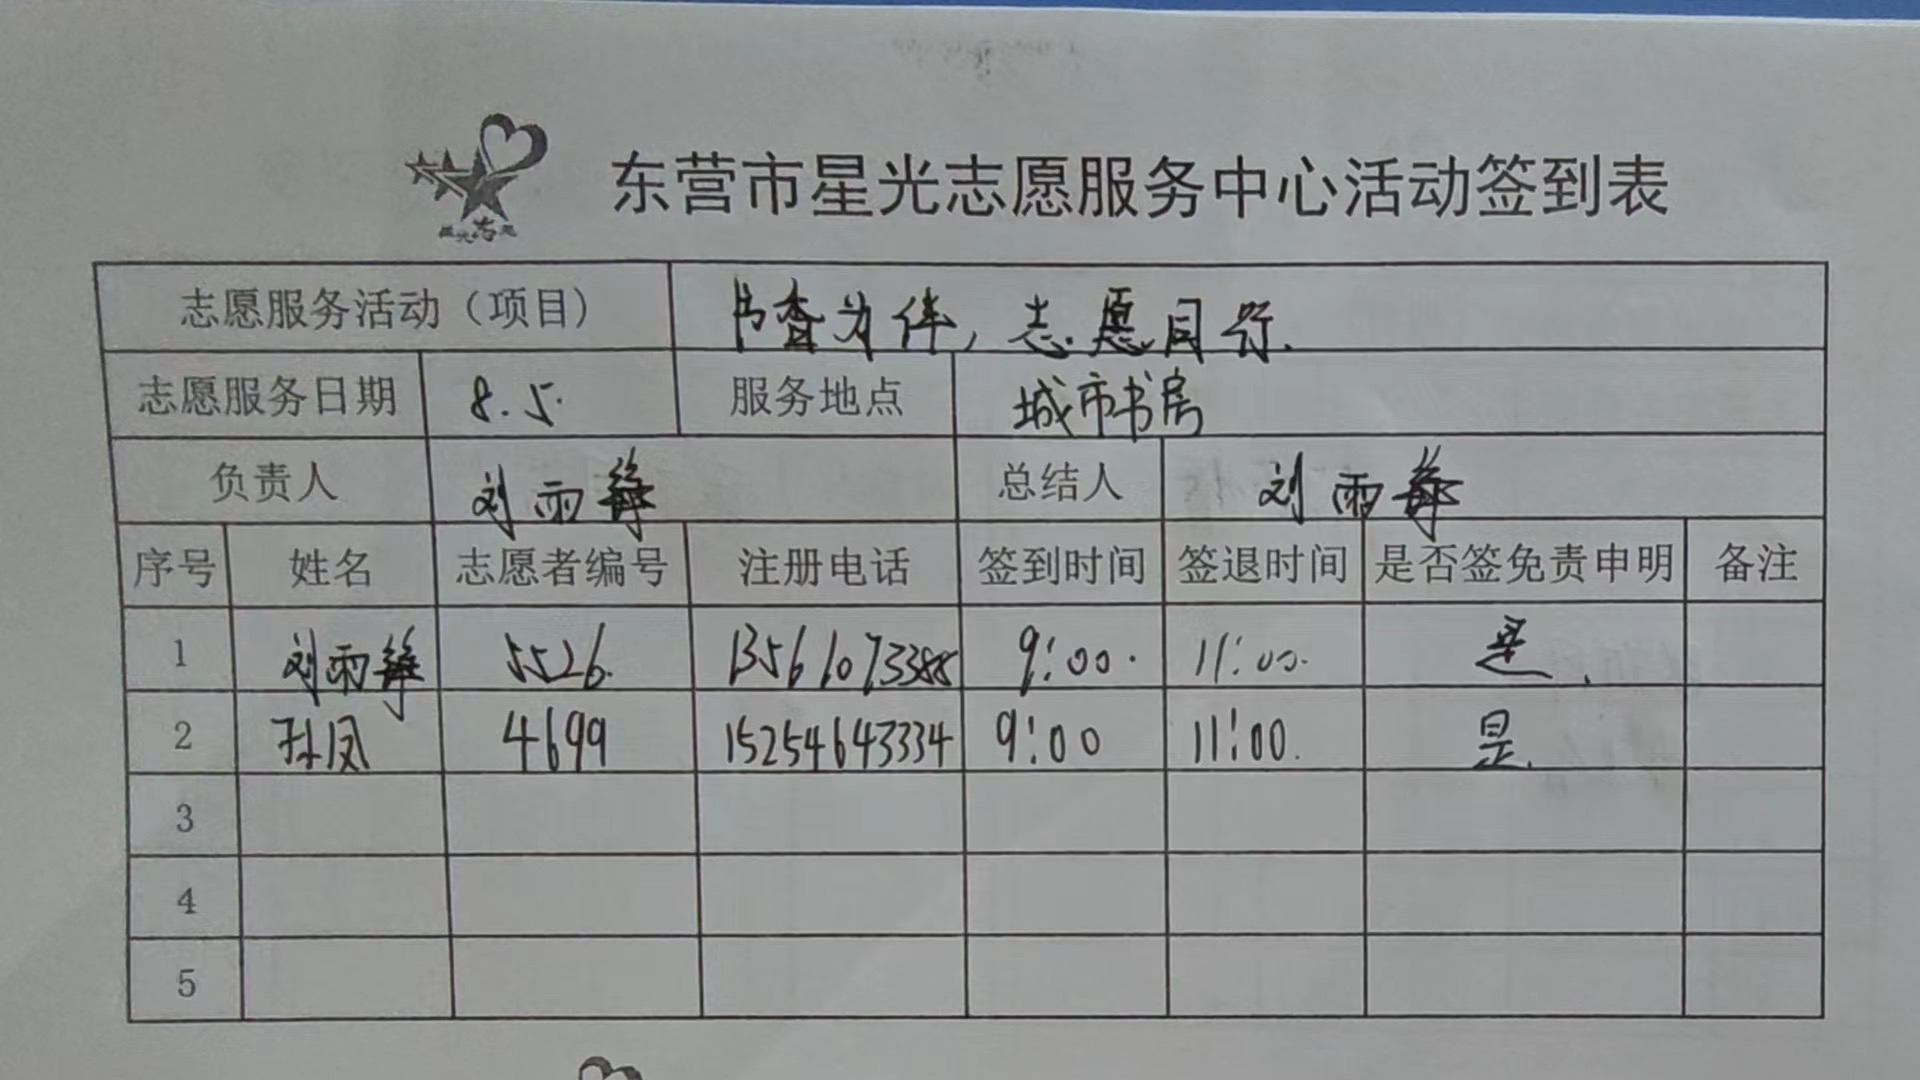 星光志愿
东营市星光志愿服务中心活动签到表
志愿服务活动（项目） 书香为伴，志愿同行.
志愿服务日期 8.5. 服务地点 城市书房
负责人 刘雨 总结人 刘雨
序号 姓名 志愿者编号 注册电话 签到时间 签退时间 是否签免责申明 备注
1 刘雨 5526. 13561073388 9:00. 11:00. 是.
2 孙凤 4699 15254643334 9:00 11:00. 是.
3
4
5